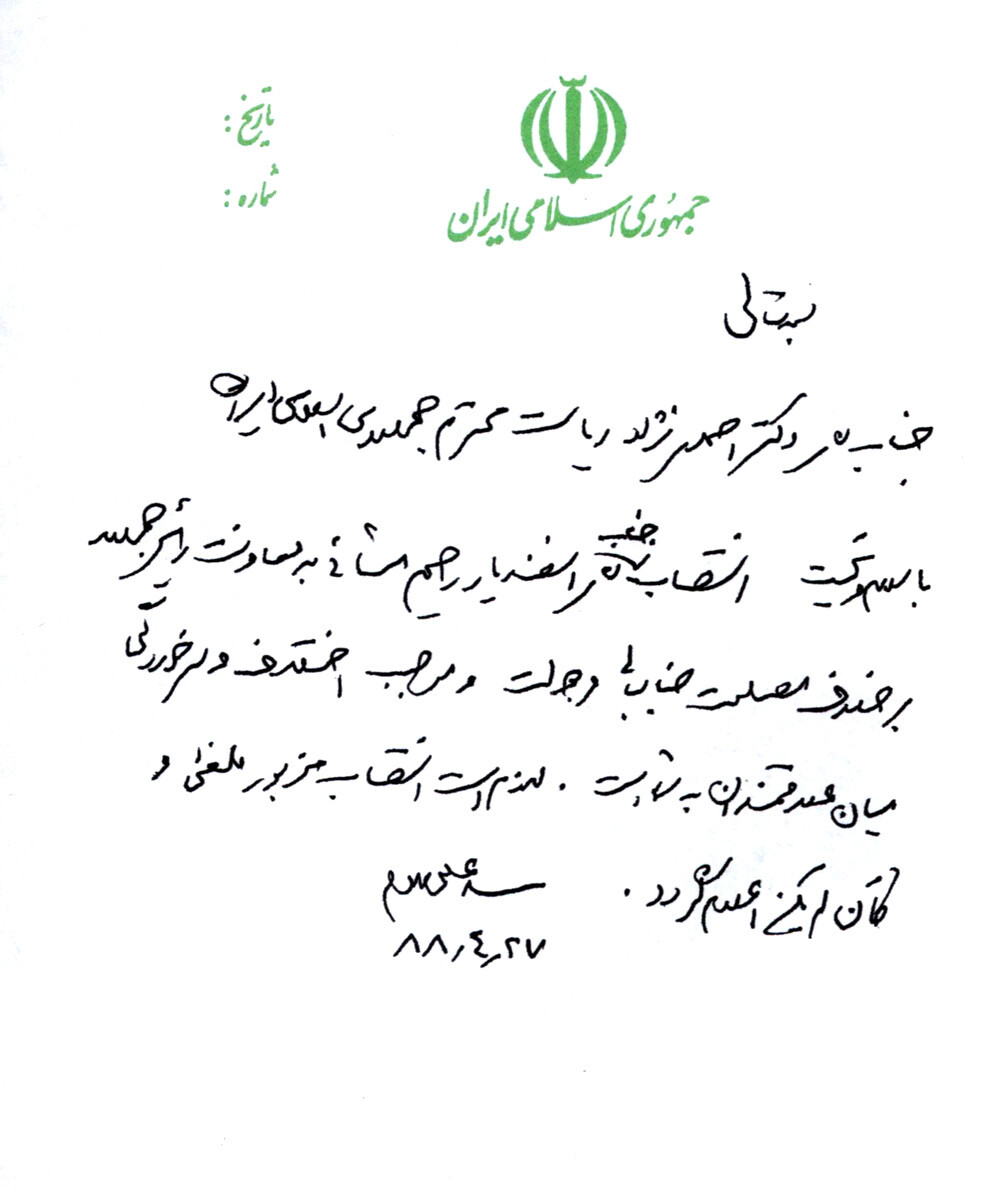 جمهوری اسلامی ایران
تاریخ :
شماره :
بسمه‌تعالی
جناب آقای دکتر احمدی نژاد ریاست محترم جمهوری اسلامی ایران
با سلام و تحیت انتصاب جناب آقای اسفندیار رحیم مشائی به معاونت رئیس جمهور
بر خلاف مصلحت جنابعالی و دولت و موجب اختلاف و سرخوردگی
میان علاقمندان به شما است . لازم است انتصاب مزبور ملغی و
کان لم یکن اعلام گردد .
سید علی خامنه‌ای
۸۸٫۴٫۲۷